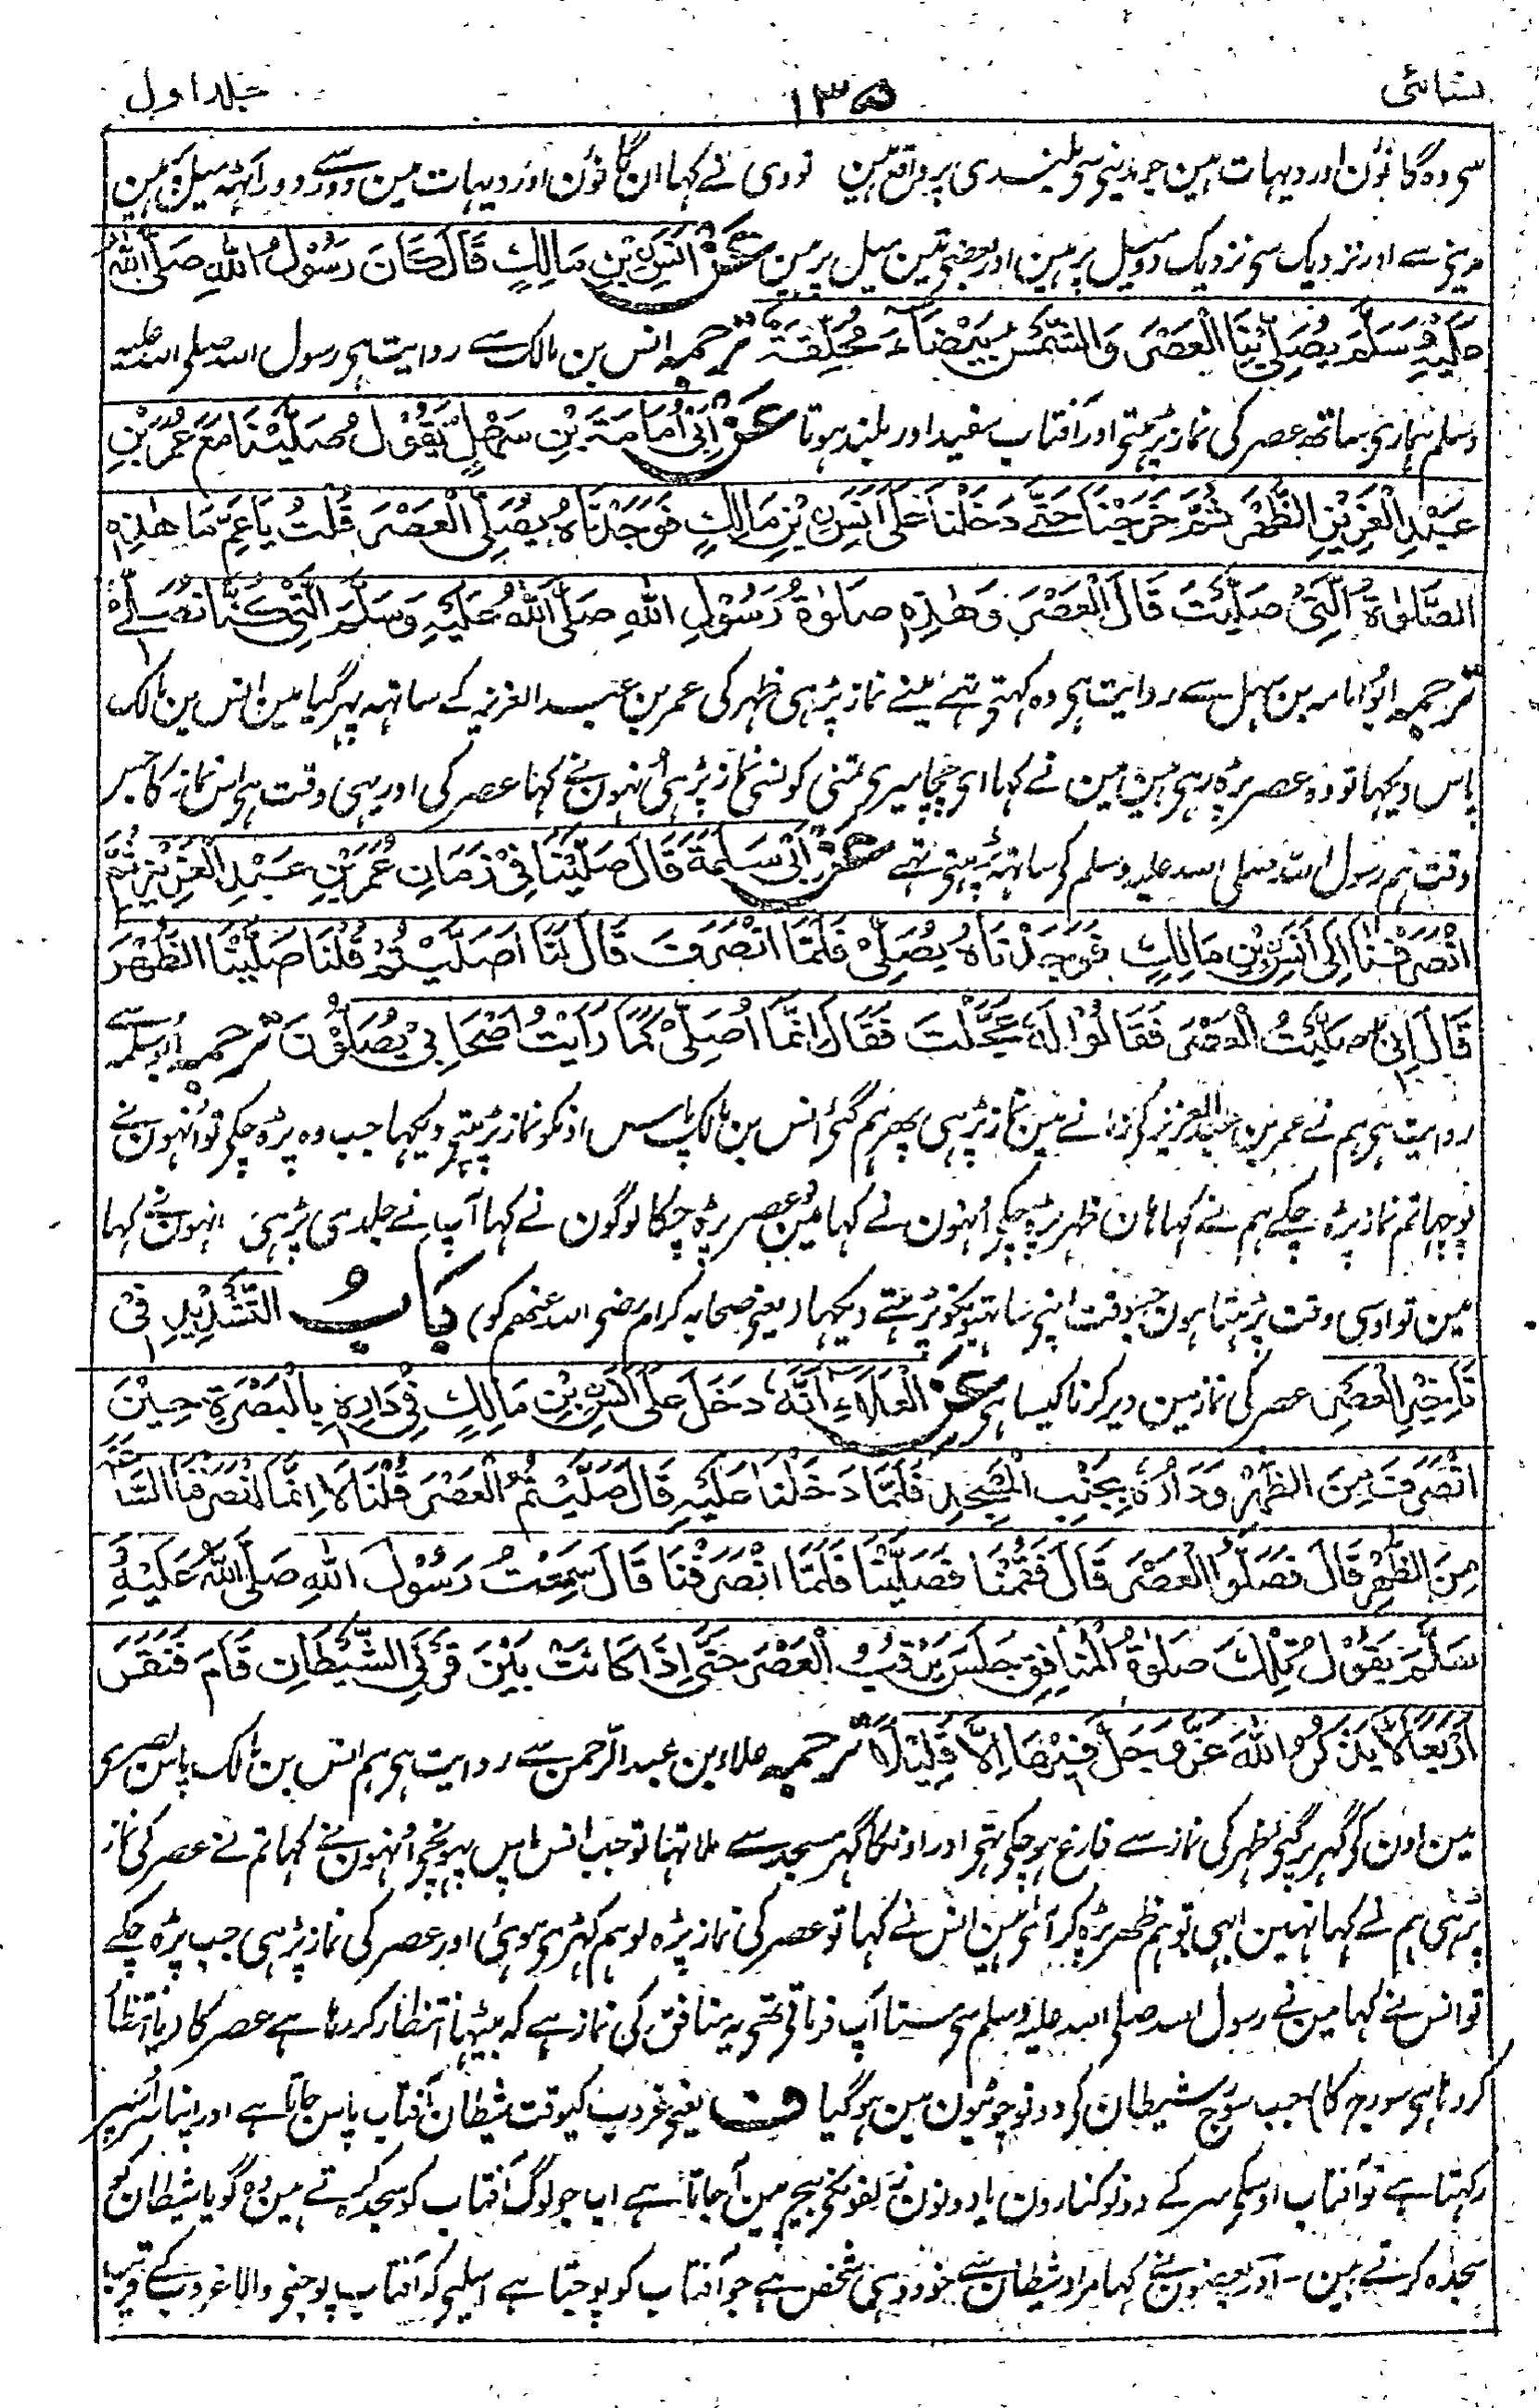 نسائی ۱۳۵ جلد اول
سے وہ گاؤن اور دیہات ہین جو مدینے سے بلندی پر واقع ہین نووی نے کہا ان گاؤن اور دیہات مین دور سے دور آٹھ میل پر ہین
مدینے سے اور نزدیک سے نزدیک دو میل پر ہین اور بعضے تین میل پر ہین عَنْ اَنَسِ بْنِ مَالِكٍ قَالَ كَانَ رَسُوْلُ اللّٰهِ صَلَّى اللّٰهُ
عَلَيْهِ وَسَلَّمَ يُصَلِّيْ بِنَا الْعَصْرَ وَالشَّمْسُ بَيْضَاءُ مُحَلِّقَةٌ ترجمہ انس بن مالک سے روایت ہے رسول اللہ صلی اللہ علیہ
وسلم ہماری ساتھ عصر کی نماز پڑہتے اور آفتاب سفید اور بلند ہوتا عَنْ اَبِيْ اُمَامَةَ بْنِ سَهْلٍ يَقُوْلُ صَلَّيْنَا مَعَ عُمَرَ بْنِ
عَبْدِ الْعَزِيْزِ الظُّهْرَ ثُمَّ خَرَجْنَا حَتّٰى دَخَلْنَا عَلٰى اَنَسِ بْنِ مَالِكٍ فَوَجَدْنَاهُ يُصَلِّي الْعَصْرَ قُلْتُ يَا عَمِّ مَا هٰذِهِ
الصَّلٰوةُ الَّتِيْ صَلَّيْتَ قَالَ الْعَصْرَ وَهٰذِهٖ صَلٰوةُ رَسُوْلِ اللّٰهِ صَلَّى اللّٰهُ عَلَيْهِ وَسَلَّمَ الَّتِيْ كُنَّا نُصَلِّيْ
ترجمہ ابو امامہ بن سہل سے روایت ہے وہ کہتے تہے مینے نماز پڑہی ظہر کی عمر بن عبد العزیز کے ساتہہ پہر گیا مین انس بن مالک
پاس دیکہا تو وہ عصر پڑہ رہے ہین مین نے کہا اے چچا میرے تمنے کونسی نماز پڑہی اُنہون نے کہا عصر کی اور یہی وقت ہے اس نماز کا جس
وقت ہم رسول اللہ صلی اللہ علیہ وسلم کے ساتہہ پڑہتے تہے عَنْ اَبِيْ سَلَمَةَ قَالَ صَلَّيْنَا فِيْ زَمَانِ عُمَرَ بْنِ عَبْدِ الْعَزِيْزِ ثُمَّ
انْصَرَفْنَا اِلٰى اَنَسِ بْنِ مَالِكٍ فَوَجَدْنَاهُ يُصَلِّيْ فَلَمَّا انْصَرَفَ قَالَ لَنَا اَصَلَّيْتُمْ قُلْنَا صَلَّيْنَا الظُّهْرَ
قَالَ اِنِّيْ صَلَّيْتُ الْعَصْرَ فَقَالُوْا لَهٗ عَجَّلْتَ فَقَالَ اِنَّمَا اُصَلِّيْ كَمَا رَاَيْتُ اَصْحَابِيْ يُصَلُّوْنَ ترجمہ ابو سلمہ سے
روایت ہے ہم نے عمر بن عبد العزیز کے زمانے مین نماز پڑہی پھر ہم گئے انس بن مالک پاس اونکو نماز پڑہتے دیکہا جب وہ پڑہ چکے تو اُنہون نے
پوچہا تم نماز پڑہ چکے ہم نے کہا ہان ظہر پڑہ چکے اُنہون نے کہا مین عصر پڑہ چکا لوگون نے کہا آپ نے جلدی پڑہی اُنہون نے کہا
مین تو اوسی وقت پڑہتا ہون جسوقت اپنے ساتہیونکو پڑہتے دیکہا (یعنے صحابہ کرام رضی اللہ عنھم کو) بَابُ التَّشْدِيْدِ فِيْ
تَاْخِيْرِ الْعَصْرِ عصر کی نماز مین دیر کرنا کیسا ہے عَنِ الْعَلَاءِ اَنَّهٗ دَخَلَ عَلٰى اَنَسِ بْنِ مَالِكٍ فِيْ دَارِهٖ بِالْبَصْرَةِ حِيْنَ
انْصَرَفَ مِنَ الظُّهْرِ وَدَارُهٗ بِجَنْبِ الْمَسْجِدِ فَلَمَّا دَخَلْنَا عَلَيْهِ قَالَ صَلَّيْتُمُ الْعَصْرَ قُلْنَا لَا اِنَّمَا انْصَرَفْنَا السَّاعَةَ
مِنَ الظُّهْرِ قَالَ فَصَلُّوا الْعَصْرَ قَالَ فَقُمْنَا فَصَلَّيْنَا فَلَمَّا انْصَرَفْنَا قَالَ سَمِعْتُ رَسُوْلَ اللّٰهِ صَلَّى اللّٰهُ عَلَيْهِ وَ
سَلَّمَ يَقُوْلُ تِلْكَ صَلٰوةُ الْمُنَافِقِ جَلَسَ يَرْقُبُ الْعَصْرَ حَتّٰى اِذَا كَانَتْ بَيْنَ قَرْنَيِ الشَّيْطَانِ قَامَ فَنَقَرَ
اَرْبَعًا لَا يَذْكُرُ اللّٰهَ عَزَّ وَجَلَّ فِيْهَا اِلَّا قَلِيْلًا ترجمہ علاء بن عبد الرحمن سے روایت ہے ہم انس بن مالک پاس بصرے
مین اون کے گہر پر گئے ظہر کی نماز سے فارغ ہو چکے تہے اور اونکا گہر مسجد سے ملا تہا تو جب انس پاس پہونچے اُنہون نے کہا تم نے عصر کی نماز
پڑہی ہم نے کہا نہین ابہی تو ہم ظہر پڑہ کر آئے ہین انس نے کہا تو عصر کی نماز پڑہ لو ہم کہڑے ہوئے اور عصر کی نماز پڑہی جب پڑہ چکے
تو انس نے کہا مین نے رسول اللہ صلی اللہ علیہ وسلم سے سنا آپ فرماتے تہے یہ منافق کی نماز ہے کہ بیٹہا انتظار کر رہا ہے عصر کا (یا انتظار
کر رہا ہے سورج کا) جب سورج شیطان کے دونو چوٹیون مین ہو گیا ف یعنے غروب کیوقت شیطان آفتاب پاس جاتا ہے اور اپنا سر اُسپر
رکہتا ہے تو آفتاب اوسکے سر کے دونو کنارون یا دونون زلفونکے بیچ مین آ جاتا ہے اب جو لوگ آفتاب کو سجدہ کرتے ہین وہ گویا شیطان کو
سجدہ کرتے ہین - اور بعضون نے کہا مراد شیطان سے خود وہی شخص ہے جو آفتاب کو پوجتا ہے اسلیے کہ آفتاب پوجنے والا غروب کے قریب